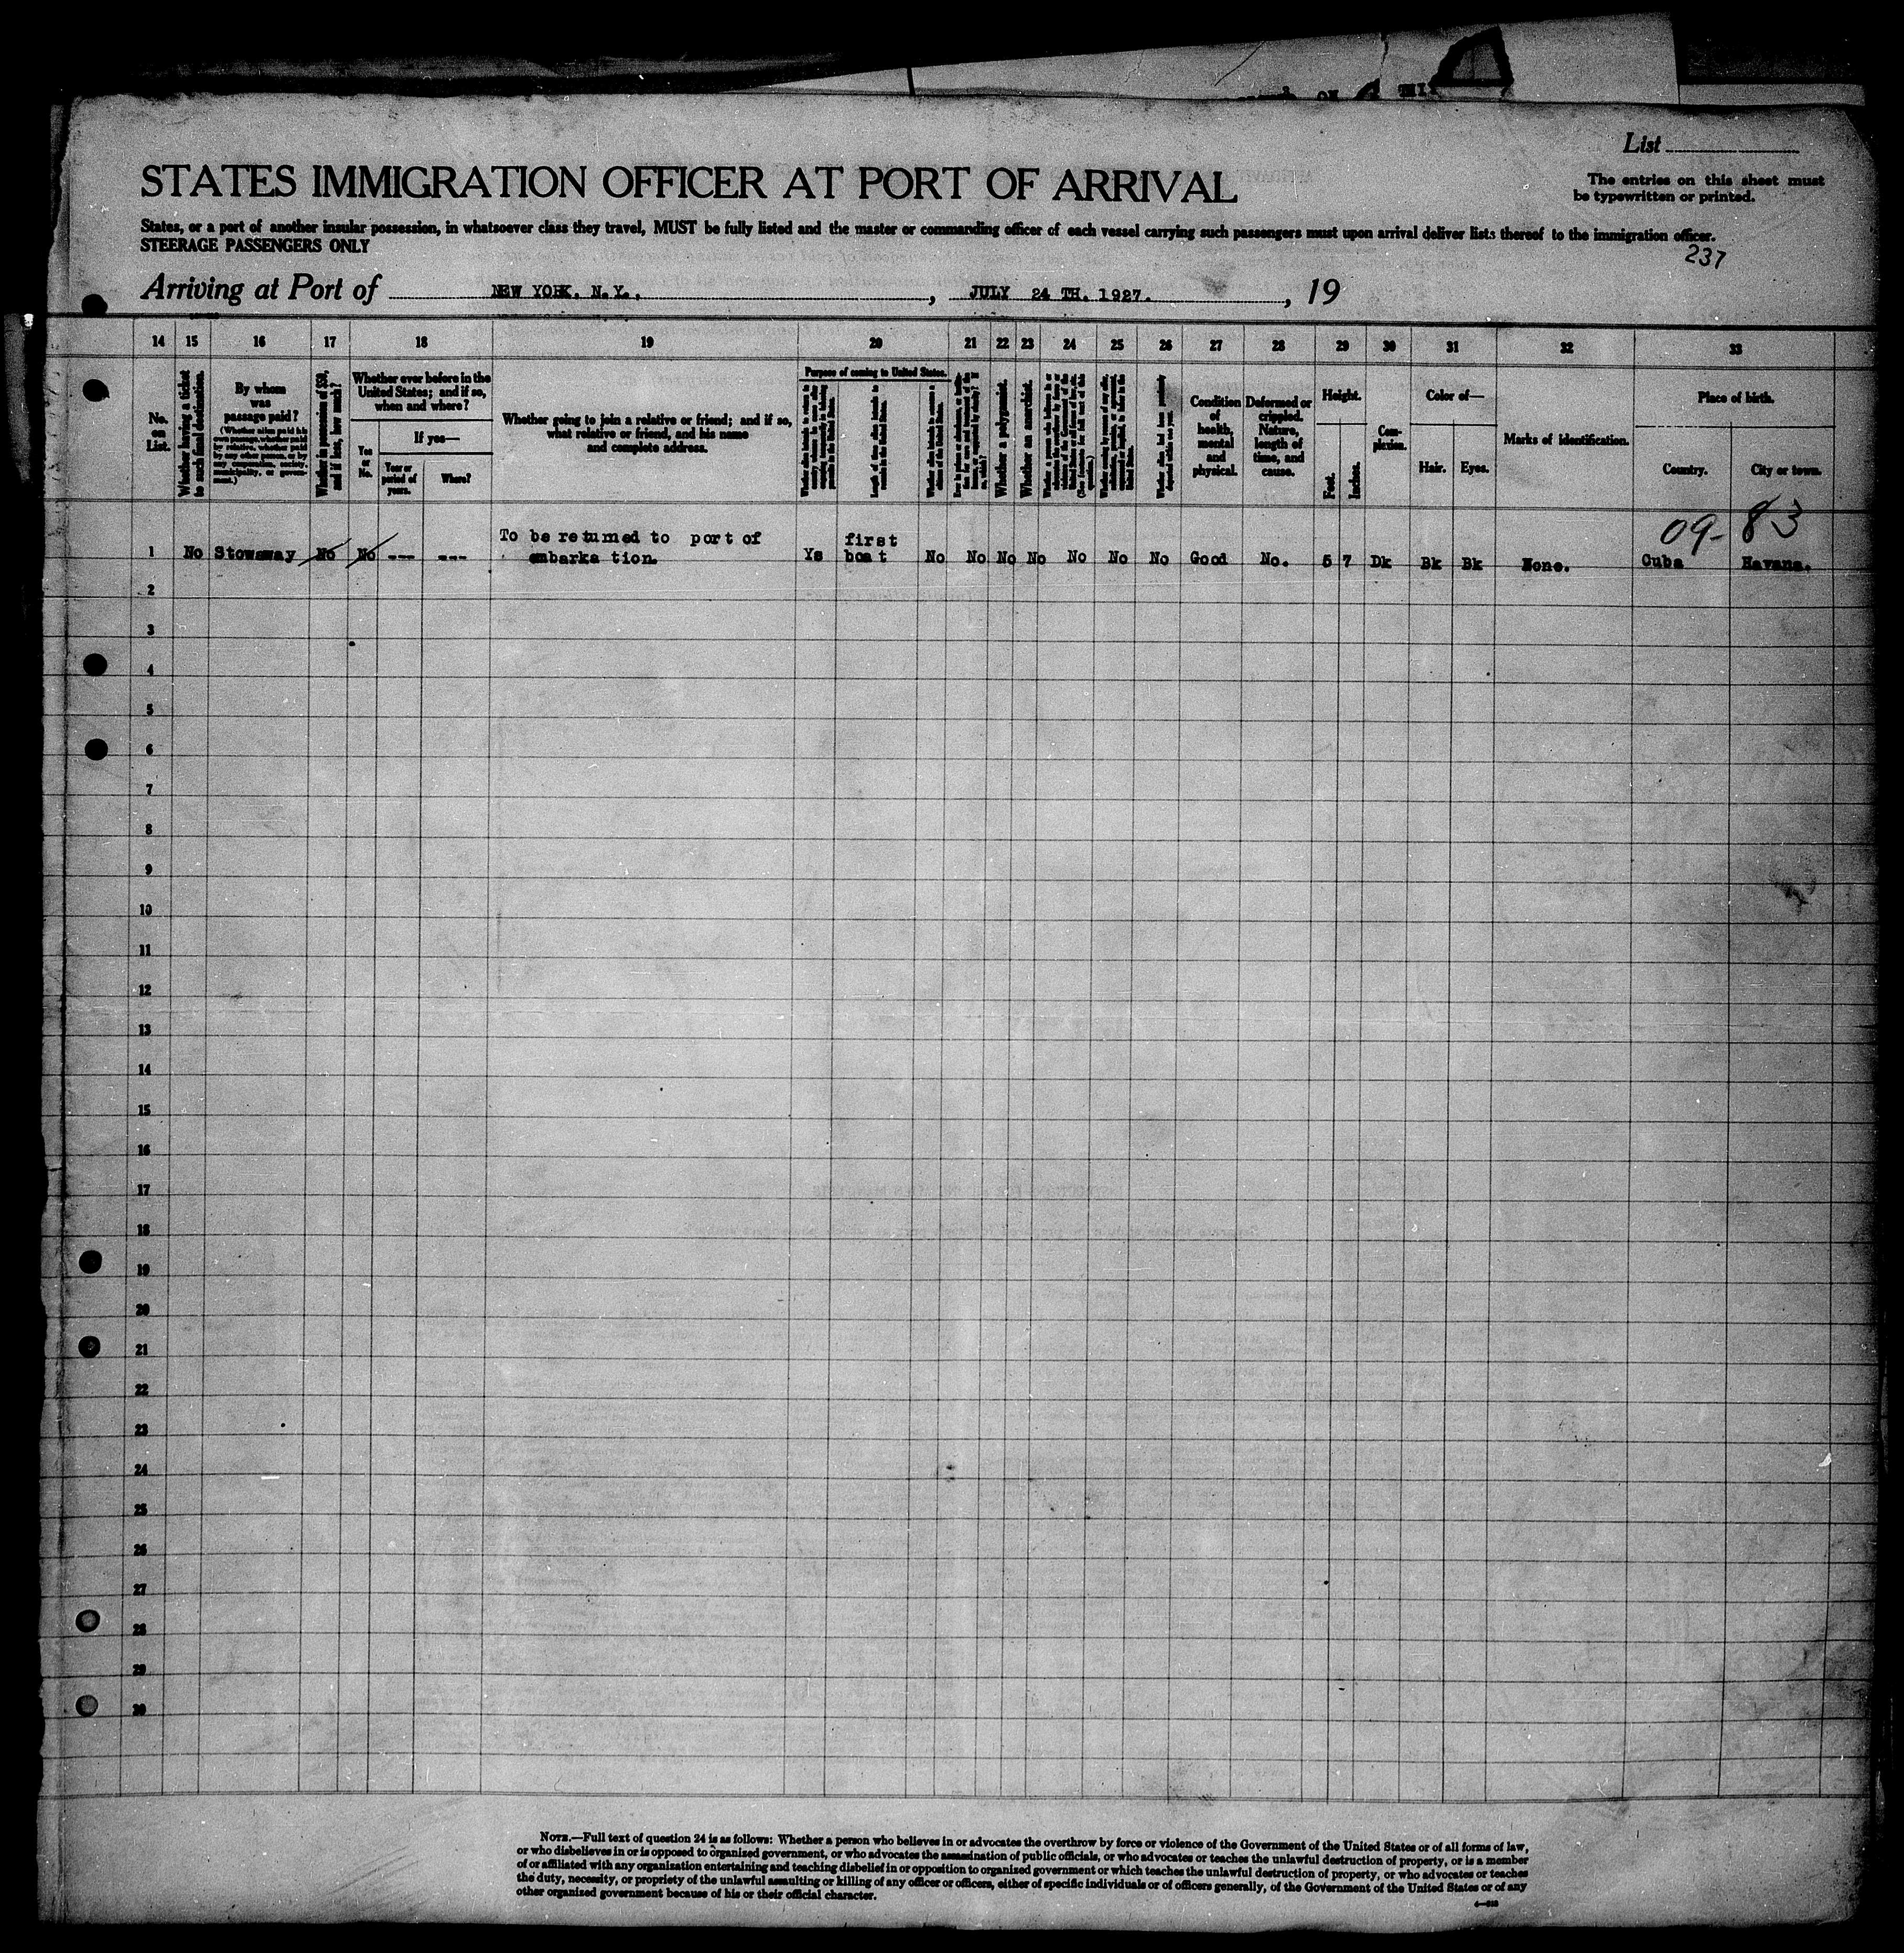 List
STATES IMMIGRATION OFFICER AT PORT OF ARRIVAL
The entries on this sheet must
be typewritten or printed.
States, or a port of another insular possession, in whatsoever class they travel, MUST be fully listed and the master or commanding officer of each vessel carrying such passengers must upon arrival deliver lists thereof to the immigration officer.
STEERAGE PASSENGERS ONLY
237
Arriving at Port of NEW YORK. N.Y., , JULY 24 TH. 1927. , 19
14 15 16 17 18 19 20 21 22 23 24 25 26 27 28 29 30 31 32 33
No.
on
List.
Whether having a ticket
to such final destination.
By whom
was
passage paid?
Whether in possession of $50,
and if less, how much?
Whether ever before in the
United States; and if so,
when and where?
Yes
or
No.
If yes—
Year or
period of
years.
Where?
Whether going to join a relative or friend; and if so,
what relative or friend, and his name
and complete address.
Purpose of coming to United States.
Whether a polygamist.
Whether an anarchist.
Condition
of
health,
mental
and
physical.
Deformed or
crippled.
Nature,
length of
time, and
cause.
Height.
Feet.
Inches.
Com-
plexion.
Color of—
Hair.
Eyes.
Marks of identification.
Place of birth.
Country.
City or town.
09-83
To be returned to port of
first
1 No Stowaway No No --- --- embarka tion. Ys boat No No No No No No No Good No. 5 7 Dk Bk Bk None. Cuba Havana.
2
3
4
5
6
7
8
9
10
11
12
13
14
15
16
17
18
19
20
21
22
23
24
25
26
27
28
29
30
NOTE.—Full text of question 24 is as follows: Whether a person who believes in or advocates the overthrow by force or violence of the Government of the United States or of all forms of law,
or who disbelieves in or is opposed to organized government, or who advocates the assassination of public officials, or who advocates or teaches the unlawful destruction of property, or is a member
of or affiliated with any organization entertaining and teaching disbelief in or opposition to organized government or which teaches the unlawful destruction of property, or who advocates or teaches
the duty, necessity, or propriety of the unlawful assaulting or killing of any officer or officers, either of specific individuals or of officers generally, of the Government of the United States or of any
other organized government because of his or their official character.